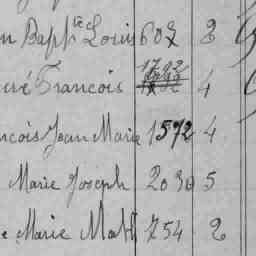 n Bapt^te Louis 607 3
ré François 1792 4
ncois Jean Marie 1572 4
Marie Joseph 2030 5
e Marie Math 754 2